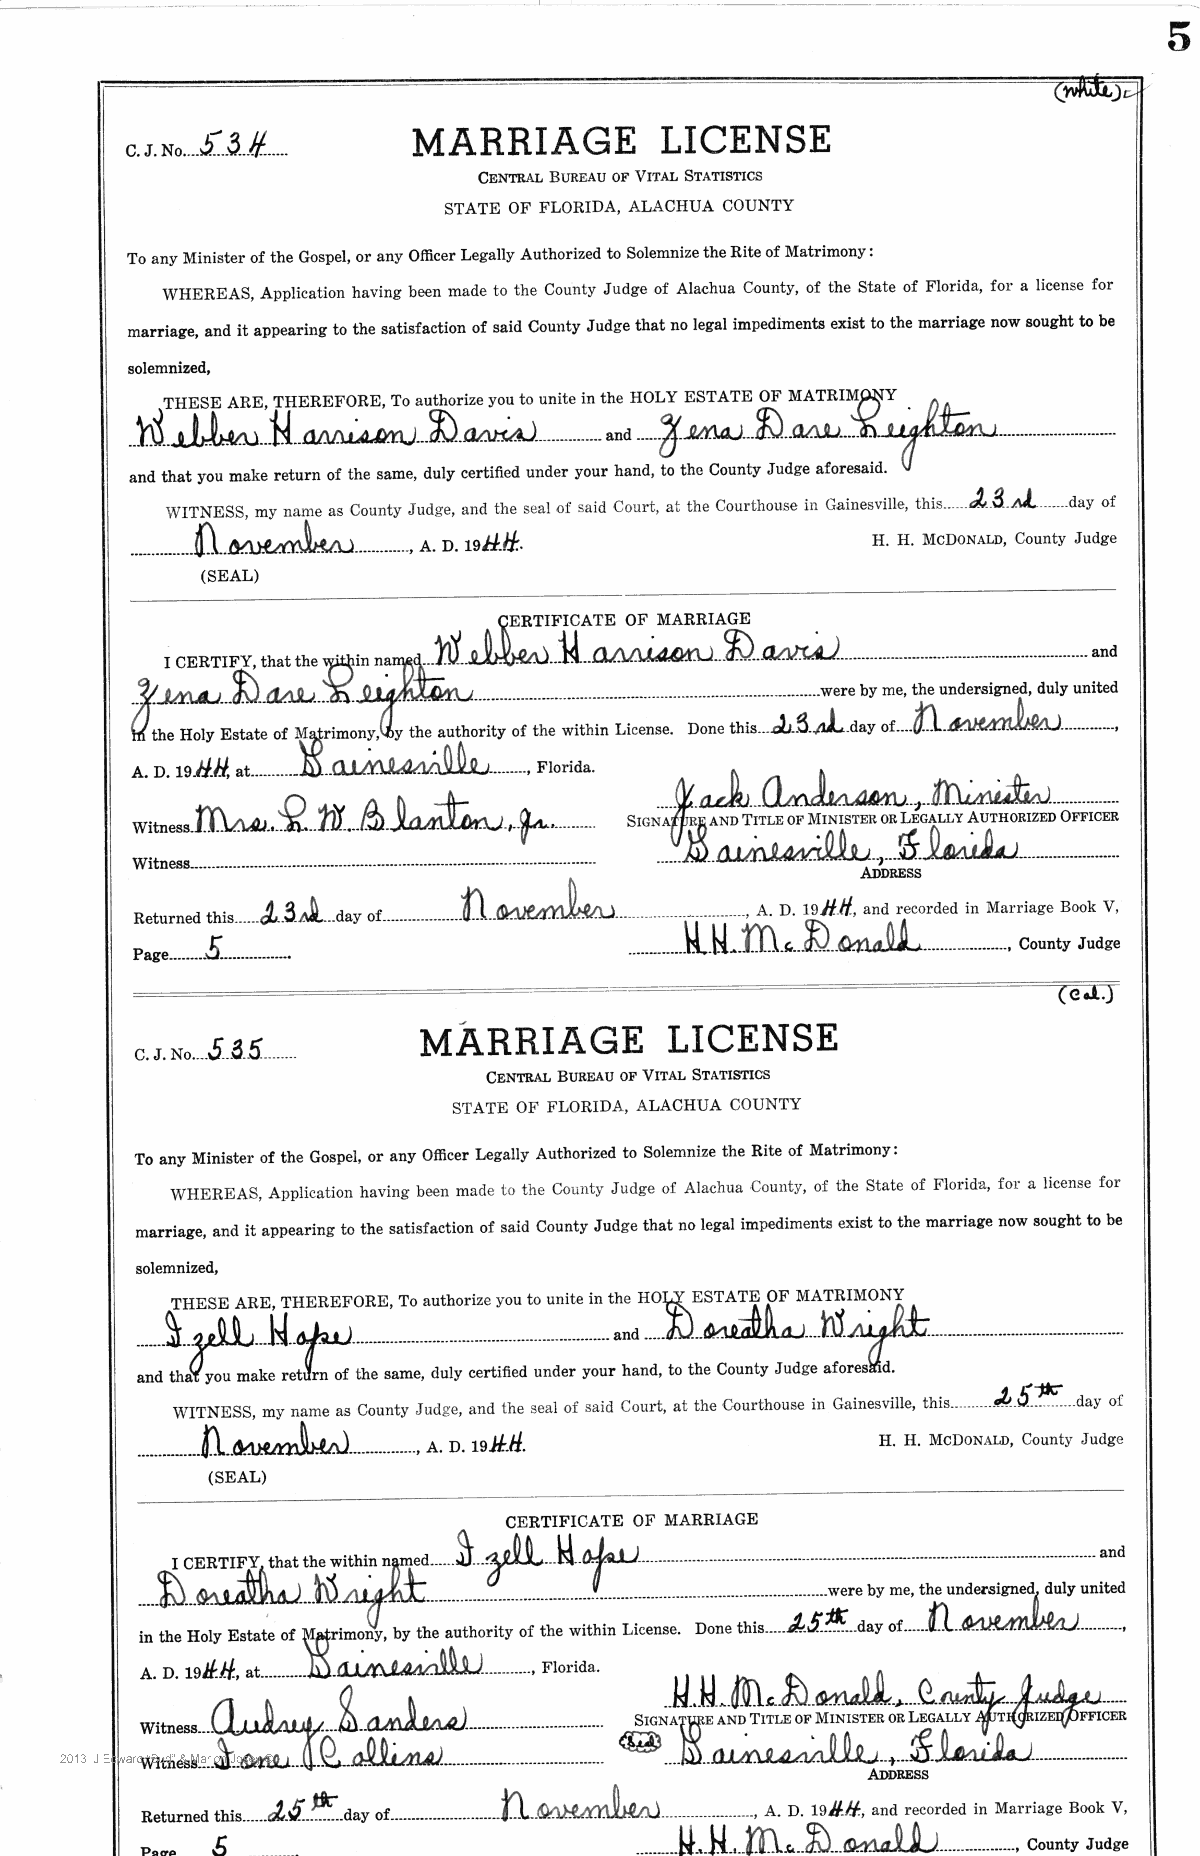 5
(white)
C. J. No. 534 MARRIAGE LICENSE
CENTRAL BUREAU OF VITAL STATISTICS
STATE OF FLORIDA, ALACHUA COUNTY
To any Minister of the Gospel, or any Officer Legally Authorized to Solemnize the Rite of Matrimony:
WHEREAS, Application having been made to the County Judge of Alachua County, of the State of Florida, for a license for
marriage, and it appearing to the satisfaction of said County Judge that no legal impediments exist to the marriage now sought to be
solemnized,
THESE ARE, THEREFORE, To authorize you to unite in the HOLY ESTATE OF MATRIMONY
Webber Harrison Davis and Zena Dare Leighton
and that you make return of the same, duly certified under your hand, to the County Judge aforesaid.
WITNESS, my name as County Judge, and the seal of said Court, at the Courthouse in Gainesville, this 23rd day of
November, A. D. 1944. H. H. McDONALD, County Judge
(SEAL)
CERTIFICATE OF MARRIAGE
I CERTIFY, that the within named Webber Harrison Davis and
Zena Dare Leighton were by me, the undersigned, duly united
in the Holy Estate of Matrimony, by the authority of the within License. Done this 23rd day of November,
A. D. 1944, at Gainesville, Florida.
Jack Anderson, Minister
Witness Mrs. L. W. Blanton, Jr. SIGNATURE AND TITLE OF MINISTER OR LEGALLY AUTHORIZED OFFICER
Witness Gainesville, Florida
ADDRESS
Returned this 23rd day of November, A. D. 1944, and recorded in Marriage Book V,
Page 5 H. H. McDonald, County Judge
(Col.)
C. J. No. 535 MARRIAGE LICENSE
CENTRAL BUREAU OF VITAL STATISTICS
STATE OF FLORIDA, ALACHUA COUNTY
To any Minister of the Gospel, or any Officer Legally Authorized to Solemnize the Rite of Matrimony:
WHEREAS, Application having been made to the County Judge of Alachua County, of the State of Florida, for a license for
marriage, and it appearing to the satisfaction of said County Judge that no legal impediments exist to the marriage now sought to be
solemnized,
THESE ARE, THEREFORE, To authorize you to unite in the HOLY ESTATE OF MATRIMONY
Izell Hope and Doreatha Wright
and that you make return of the same, duly certified under your hand, to the County Judge aforesaid.
WITNESS, my name as County Judge, and the seal of said Court, at the Courthouse in Gainesville, this 25th day of
November, A. D. 1944. H. H. McDONALD, County Judge
(SEAL)
CERTIFICATE OF MARRIAGE
I CERTIFY, that the within named Izell Hope and
Doreatha Wright were by me, the undersigned, duly united
in the Holy Estate of Matrimony, by the authority of the within License. Done this 25th day of November,
A. D. 1944, at Gainesville, Florida.
H. H. McDonald, County Judge
Witness Audrey Sanders SIGNATURE AND TITLE OF MINISTER OR LEGALLY AUTHORIZED OFFICER
Witness Ione J Collins (Seal) Gainesville, Florida
ADDRESS
Returned this 25th day of November, A. D. 1944, and recorded in Marriage Book V,
Page 5 H. H. McDonald, County Judge